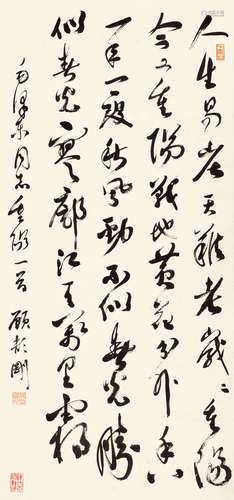 人生易老天難老歲〻重陽
今又重陽戰地黃花分外香
一年一度秋風勁不似春光勝
似春光寥廓江天萬里霜
毛澤東同志重陽一首 顧頡剛